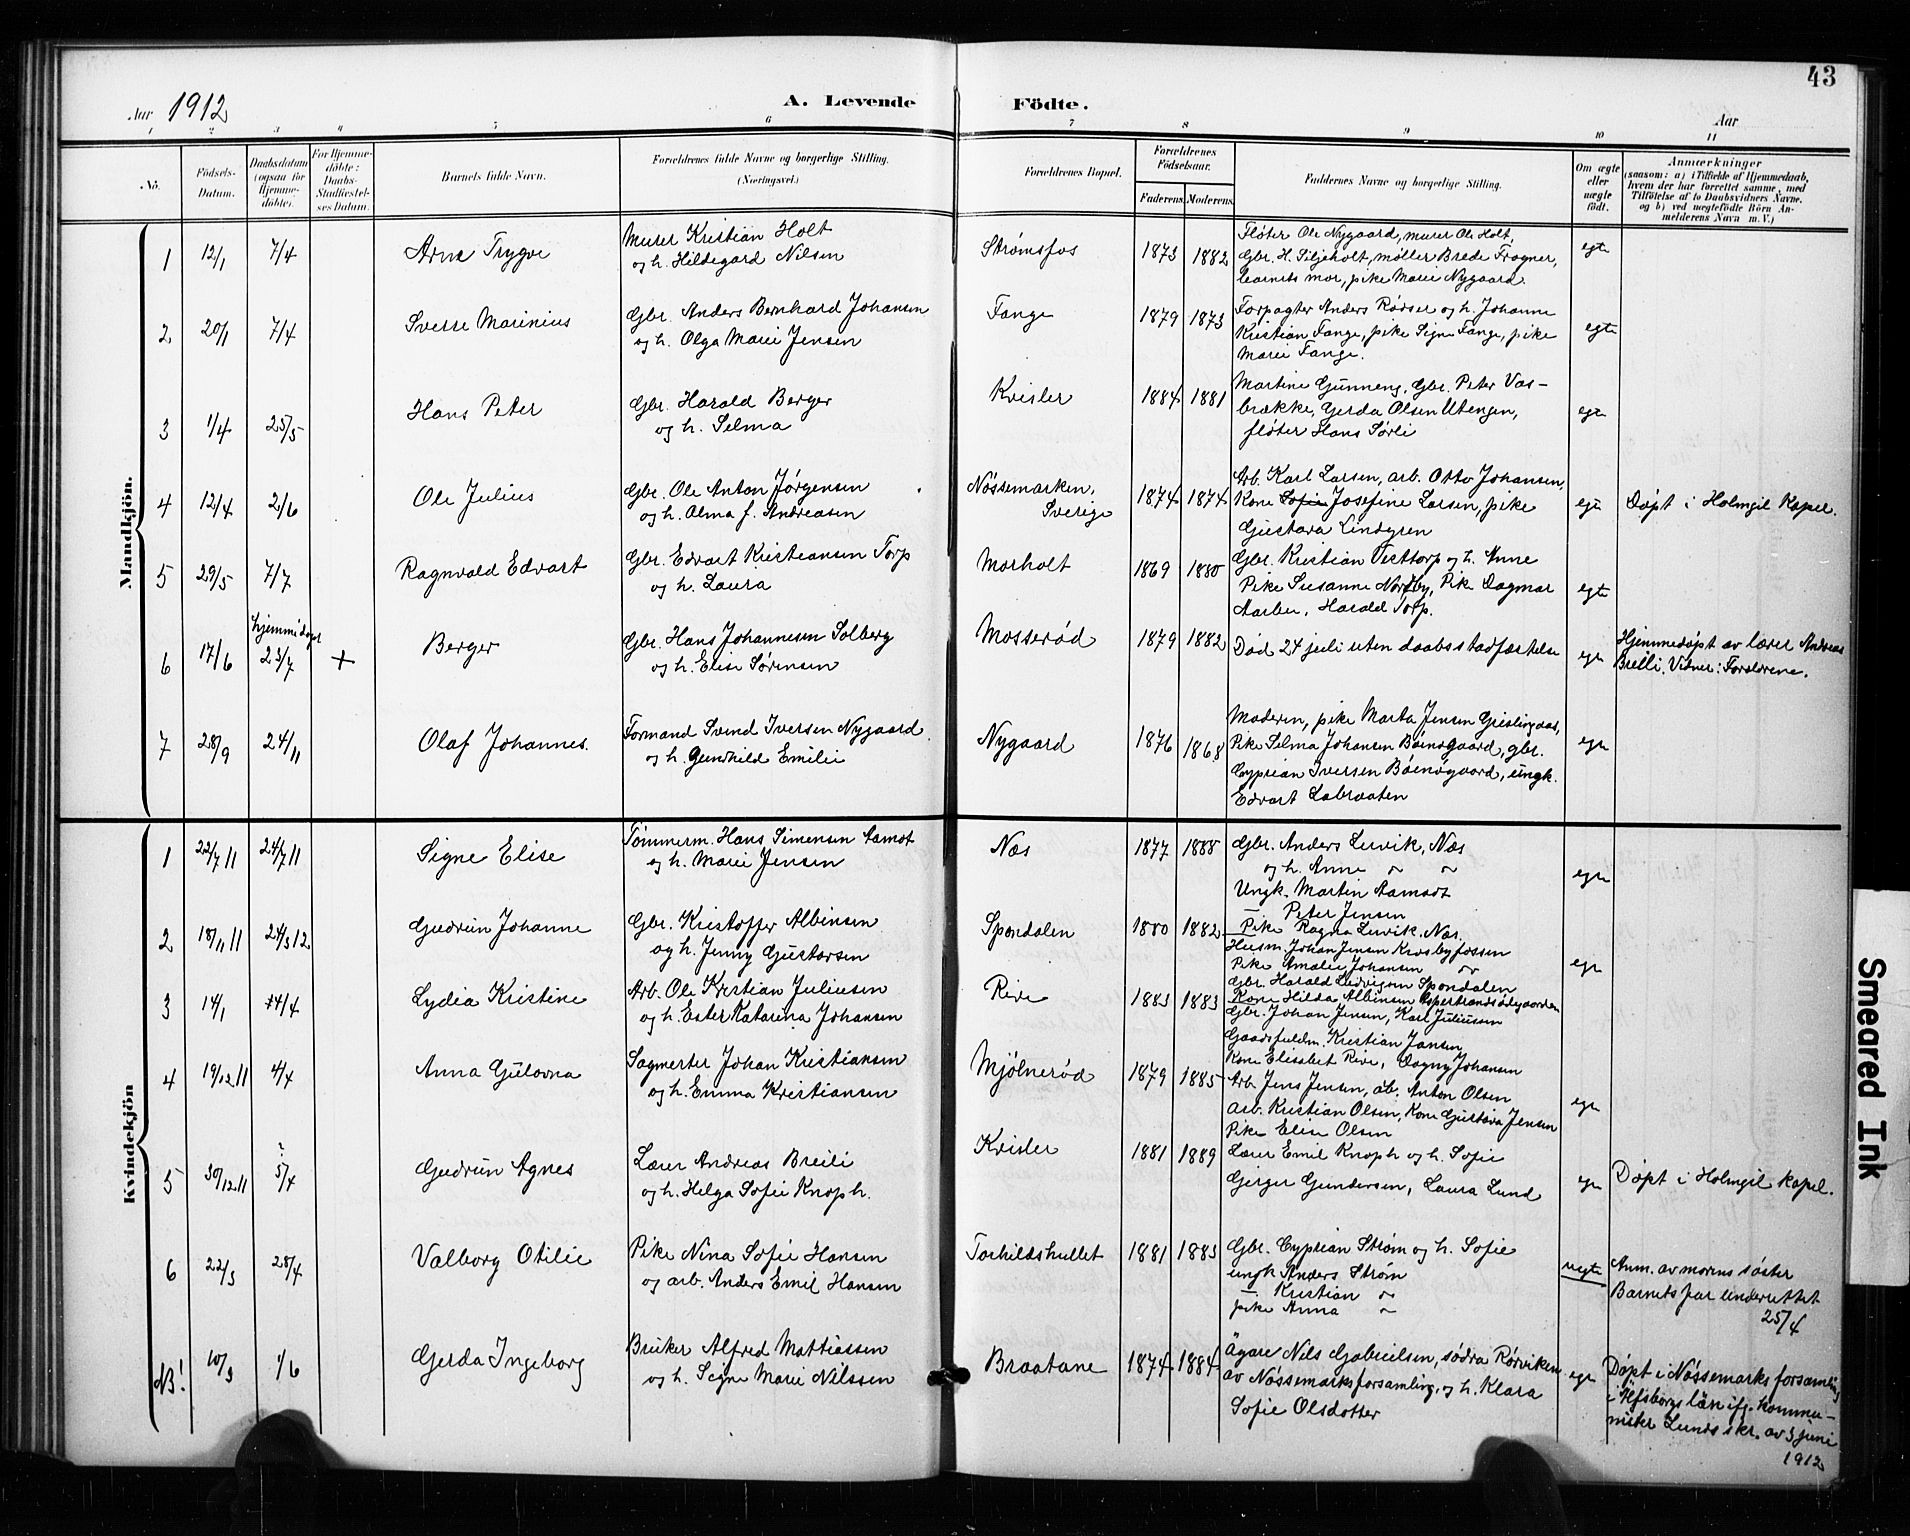 43
Aar 1912
A. Levende Födte.
Aar
1 2 3 4 5 6 7 8 9 10 11
No. Födsels-Datum. Daabsdatum (ogsaa for Hjemmedöbte). For Hjemmedöbte: Daabs-Stadfæstelses Datum. Barnets fulde Navn. Forældrenes fulde Navne og borgerlige Stilling. (Næringsvei.) Forældrenes Bopæl. Forældrenes Födselsaar. Faderens. Moderens. Faddernes Navne og borgerlige Stilling. Om ægte eller uægte födt. Anmærkninger (saasom: a) i Tilfælde af Hjemmedaab, hvem der har forrettet samme, med Tilföielse af to Daabsvidners Navne, og b) ved uægtefödte Börn Anmelderens Navn m. V.)
Mandkjön.
1 12/1 7/4 Arne Trygve Murer Kristian Holt Strømsfos 1873 1882 Fløter Ole Nygaard, murer Ole Holt, egte
og h. Hildegard Nilsen Gbr. H. Siljeholt, møller Brede Frogner,
barnets mor, pike Marie Nygaard.
2 20/1 7/4 Sverre Marinius Gbr. Anders Bernhard Johansen Fange 1879 1873 Forpagter Anders Rørser og h. Johanne egte
og h. Olga Marie Jensen Kristian Fange, pike Signe Fange, pike
Marie Fange.
3 1/4 25/5 Hans Peter Gbr. Harald Berger Kvisler 1884 1881 Martine Gunneng, Gbr. Peter Vas- egte
og h. Selma brække, Gerda Olsen Utengen,
fløter Hans Sørli
4 12/4 2/6 Ole Julius Gbr. Ole Anton Jørgensen Nössemarken, 1874 1874 Arb. Karl Larsen, arb. Otto Johansen, egte Døpt i Holmgil Kapel.
og h. Alma f. Andreasen Sverige Kone Sofie Josefine Larsen, pike
Gustava Lindgren
5 29/5 7/7 Ragnvald Edvart Gbr. Edvart Kristiansen Torp Morholt 1869 1880 Gbr. Kristian Vesttorp og h. Anne egte
og h. Laura Pike Susanne Nordby, Pike Dagmar
Aarbu, Harald Torp.
6 17/6 hjemmedøpt 23/7 + Berger Gbr. Hans Johannesen Solberg Mosserød 1879 1882 Død 24 juli uten daabsstadfæstelse egte Hjemmedøpt av lærer Andreas
og h. Elise Sørensen Breili. Vidner: Forældrene.
7 28/9 24/11 Olaf Johannes. Formand Svend Iversen Nygaard. Nygaard 1876 1868 Moderen, pike Marta Jensen Grislingaas, egte
og h. Gunhild Emilie Pike Selma Johansen Bøensgaard, gbr.
Cyprian Iversen Bøensgaard, ungk.
Edvart Labraaten
Kvindekjön
1 22/7 11 24/7 11 Signe Elise Tømmerm. Hans Simensen Aamot Næs 1877 1888 Gbr. Anders Lervik, Næs egte
og h. Marie Jensen og h. Anne ~ ~
Ungk. Martin Aamodt
— Peter Jensen
Pike Ragna Lervik. Næs.
2 18/11 11 24/3 12 Gudrun Johanne Gbr. Kristoffer Albinsen Spondalen 1880 1882 Husm. Johan Jensen Krosbyfossen egte
og h. Jenny Gustavsen Pike Amalie Johansen ~
Gbr. Harald Ludvigsen Spondalen
Kone Hilda Albinsen
3 14/1 4/4 Lydia Kristine Arb. Ole Kristian Juliusen Rive 1883 1883 Gbr. Johan Jensen, Karl Juliussen
og h. Ester Katarina Johansen Gaardsfuldm. Kristian Jansen
Kone Elisabet Rive, Dagny Johansen
4 19/12 11 4/4 Anna Gulovna Sagmester Johan Kristiansen Mjølnerød 1879 1885 Arb. Jens Jensen, ab. Anton Olsen egte
og h. Emma Kristiansen arb. Kristian Olsen, Kone Gustava Jensen
Pike Elise Olsen
5 30/12 11 ? 5/4 Gudrun Agnes Lærer Andreas Breili Kvisler 1881 1889 Lærer Emil Knoph og h. Sofie egte Døpt i Holmgil kapel.
og h. Helga Sofie Knoph. Gerger Gundersen, Laura Lund
6 22/3 28/4 Valborg Otilie Pike Nina Sofie Hansen Torhildshullet 1881 1883 Gbr. Cyprian Strøm og h. Sofie uegte Anm. av morens søster
og arb. Anders Emil Hansen ungk Anders Strøm Barnets far underrettet
— Kristian ~ 25/4
pike Anna ~
NB! 10/3 1/6 Gerda Ingeborg Bruker Alfred Mattiassen Braatane 1874 1884 Ägare Nils Gabrielsen, södra Rörviken egte Døpt i Nössemarks forsamling
og h. Signe Marie Nilssen av Nössemarks forsamling, og h. Klara i Elfsborgs län ifg. kommu-
Sofie Olsdotter nister Lunds skr. av 3 juni
1912
Smeared Ink